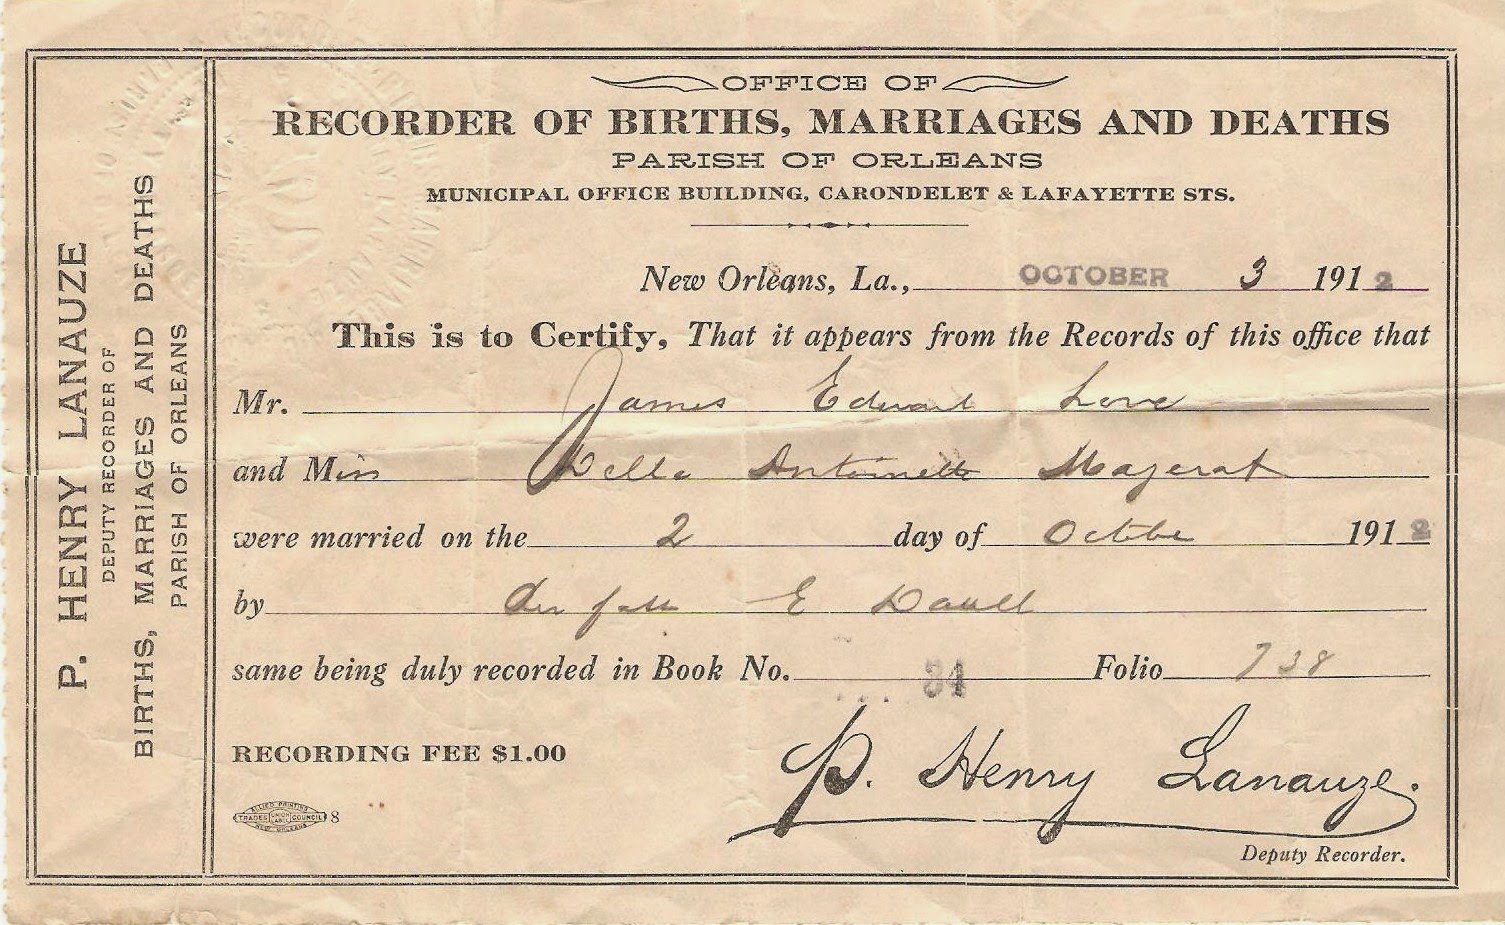 P. HENRY LANAUZE
DEPUTY RECORDER OF
BIRTHS, MARRIAGES AND DEATHS
PARISH OF ORLEANS
OFFICE OF
RECORDER OF BIRTHS, MARRIAGES AND DEATHS
PARISH OF ORLEANS
MUNICIPAL OFFICE BUILDING, CARONDELET & LAFAYETTE STS.
New Orleans, La., OCTOBER 3 1912
This is to Certify, That it appears from the Records of this office that
Mr. James Edward Love
and Miss Della Antoinette Mazerat
were married on the 2 day of October 1912
by E
same being duly recorded in Book No. 34 Folio 738
RECORDING FEE $1.00
P. Henry Lanauze.
ALLIED PRINTING
TRADES UNION LABEL COUNCIL 8
NEW ORLEANS
Deputy Recorder.